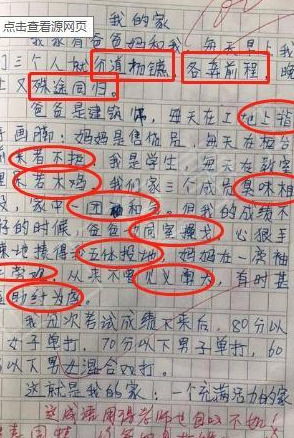 我的家
点击查看源网页
我家有爸爸妈和我，每天早上我
们三个人就分道扬镳，各奔前程，晚
上又殊途同归。
爸爸是建筑师，每天在工地上指
手画脚；妈妈是售货员，每天在柜台
来者不拒。我是学生，每天在教室
呆若木鸡。我们家三个成员臭味相
家中一团和气。但我的成绩不
好的时候，爸爸也同室操戈，心狠手
辣地揍得我五体投地，妈妈在一旁袖
手旁观，从来不曾见义勇为，有时甚
助纣为虐。
我每次考试成绩下来后，80分以
女子单打，70分以下男子单打，60
以下男女混合双打。
这就是我的家，一个充满活力的家
这成语用得老师也自叹不如